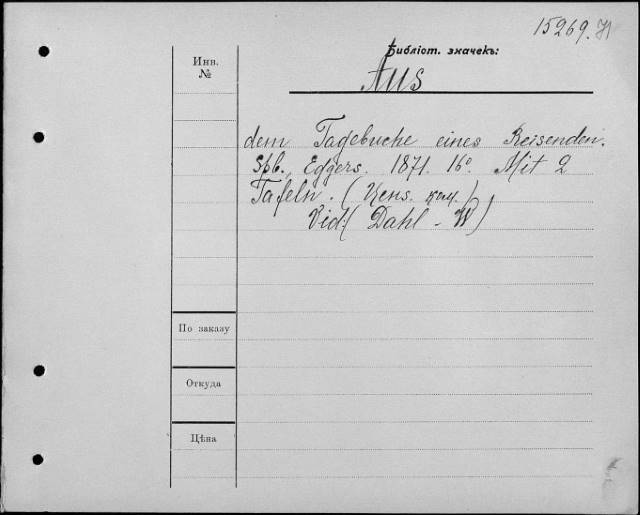 15269.
Библіот. значекъ:
Инв.
№
Aus
dem Tagebuche eines Reisenden.
Spb., Eggers. 1871. 16°. Mit 2
Tafeln. (Kens. кат.)
Vid. (Dahl - W)
По заказу
Откуда
Цѣна